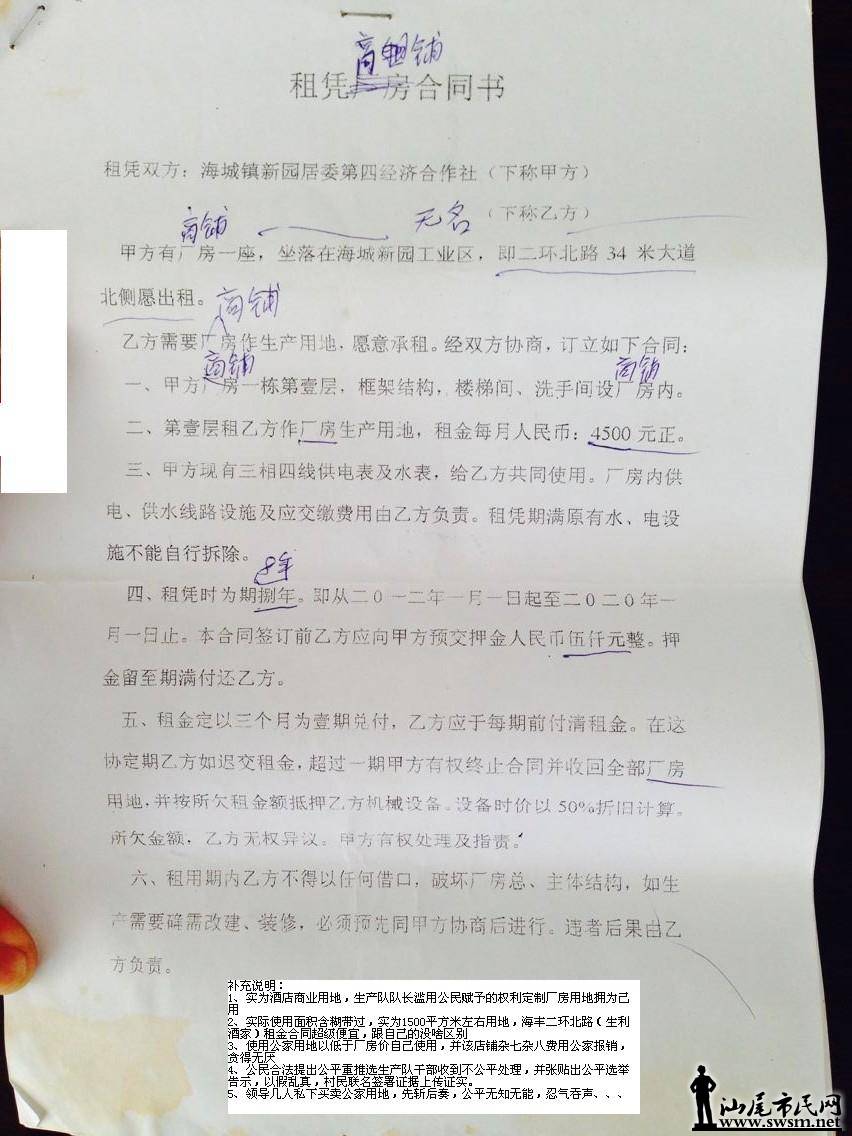 商铺
租凭厂房合同书
租凭双方：海城镇新园居委第四经济合作社（下称甲方）
商铺 无名（下称乙方）
甲方有厂房一座，坐落在海城新园工业区，即二环北路 34 米大道
北侧愿出租。商铺
乙方需要厂房作生产用地，愿意承租。经双方协商，订立如下合同：
商铺 商铺
一、甲方厂房一栋第壹层，框架结构，楼梯间、洗手间设厂房内。
二、第壹层租乙方作厂房生产用地，租金每月人民币：4500 元正。
三、甲方现有三相四线供电表及水表，给乙方共同使用。厂房内供
电、供水线路设施及应交缴费用由乙方负责。租凭期满原有水、电设
施不能自行拆除。
8年
四、租凭时为期捌年。即从二0一二年一月一日起至二0二0年一
月一日止。本合同签订前乙方应向甲方预交押金人民币伍仟元整。押
金留至期满付还乙方。
五、租金定以三个月为壹期兑付，乙方应于每期前付清租金。在这
协定期乙方如迟交租金，超过一期甲方有权终止合同并收回全部厂房
用地，并按所欠租金额抵押乙方机械设备。设备时价以 50%折旧计算。
所欠金额，乙方无权异议。甲方有权处理及指责。
六、租用期内乙方不得以任何借口，破坏厂房总、主体结构，如生
产需要确需改建、装修，必须预先同甲方协商后进行。违者后果由乙
方负责。
补充说明：
1、实为酒店商业用地，生产队队长滥用公民赋予的权利定制厂房用地拥为己
用
2、实际使用面积含糊带过，实为1500平方米左右用地，海丰二环北路（生利
酒家）租金合同超级便宜，跟自己的没啥区别
3、使用公家用地以低于厂房价自己使用，并该店铺杂七杂八费用公家报销，
贪得无厌
4、公民合法提出公平重推选生产队干部收到不公平处理，并张贴出公平选举
告示，以假乱真，村民联名签署证据上传证实。
5、领导几人私下买卖公家用地，先斩后奏，公平无知无能，忍气吞声、、、
汕尾市民网
www.swsm.net